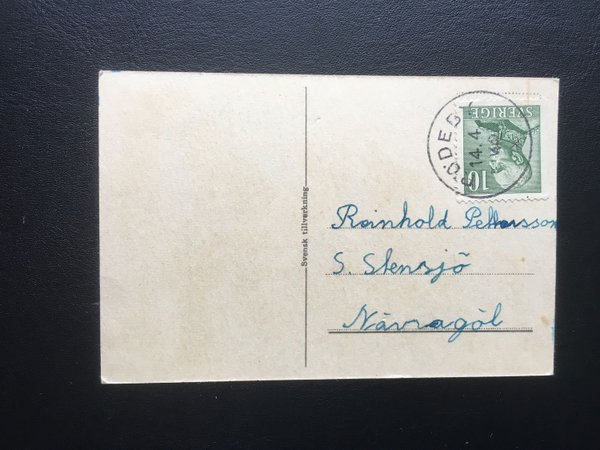 SVERIGE
10
RÖDEBY
14.4.
Svensk tillverkning
Reinhold Pettersson
S. Stensjö
Nävragöl